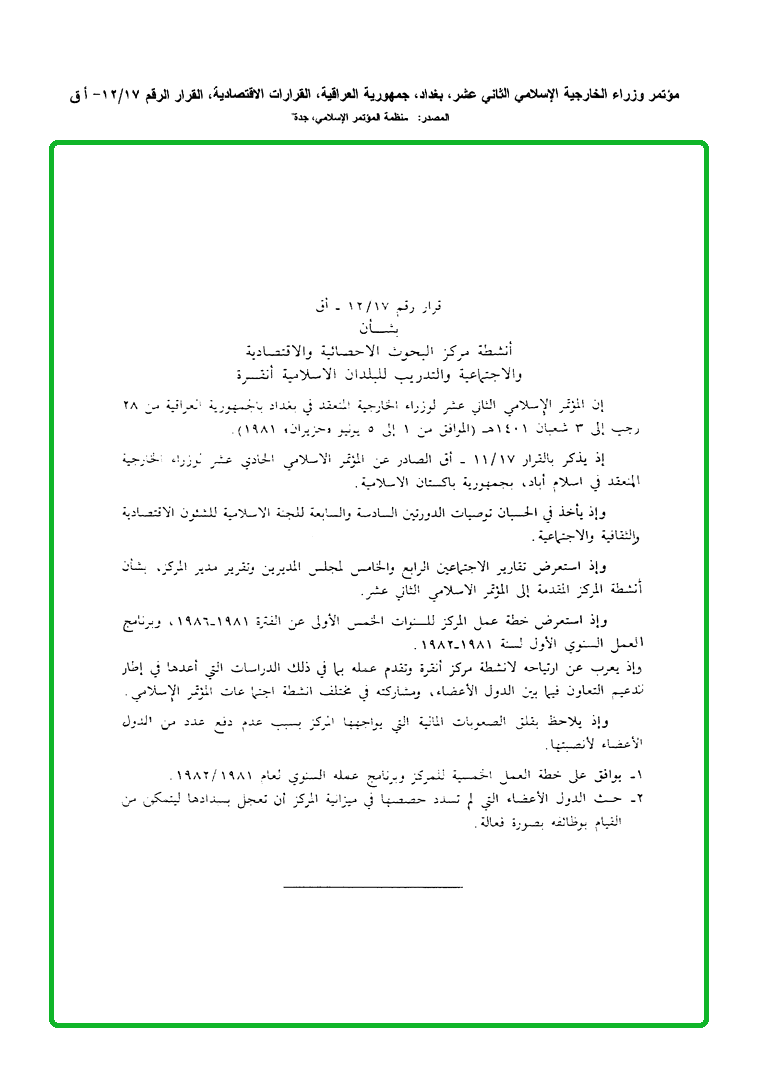 مؤتمر وزراء الخارجية الإسلامي الثاني عشر، بغداد، جمهورية العراقية، القرارات الاقتصادية، القرار الرقم ١٢/١٧- أ ق
المصدر: منظمة المؤتمر الإسلامي، جدة
قرار رقم ١٢/١٧ ـ أق
بشـــأن
أنشطة مركز البحوث الاحصائية والاقتصادية
والاجتماعية والتدريب للبلدان الاسلامية أنقـرة
إن المؤتمر الإسلامي الثاني عشر لوزراء الخارجية المنعقد في بغداد بالجمهورية العراقية من ٢٨
رجب إلى ٣ شعبان ١٤٠١هـ (الموافق من ١ إلى ٥ يونيو «حزيران» ١٩٨١).
إذ يذكر بالقرار ١١/١٧ ـ أق الصادر عن المؤتمر الاسلامي الحادي عشر لوزراء الخارجية
المنعقد في اسلام أباد، بجمهورية باكستان الاسلامية.
وإذ يأخذ في الحسبان توصيات الدورتين السادسة والسابعة للجنة الاسلامية للشئون الاقتصادية
والثقافية والاجتماعية.
وإذ استعرض تقارير الاجتماعين الرابع والخامس لمجلس المديرين وتقرير مدير المركز، بشأن
أنشطة المركز المقدمة إلى المؤتمر الاسلامي الثاني عشر.
وإذ استعرض خطة عمل المركز للسنوات الخمس الأولى عن الفترة ١٩٨١ـ١٩٨٦، وبرنامج
العمل السنوي الأول لسنة ١٩٨١ـ١٩٨٢.
وإذ يعرب عن ارتياحه لانشطة مركز أنقرة وتقدم عمله بما في ذلك الدراسات التي أعدها في إطار
تدعيم التعاون فيما بين الدول الأعضاء، ومشاركته في مختلف انشطة اجتماعات المؤتمر الإسلامي.
وإذ يلاحظ بقلق الصعوبات المالية التي يواجهها المركز بسبب عدم دفع عدد من الدول
الأعضاء لأنصبتها.
١ـ يوافق على خطة العمل الخمسية للمركز وبرنامج عمله السنوي لعام ١٩٨٢/١٩٨١.
٢ـ حـث الدول الأعضاء التي لم تسدد حصصها في ميزانية المركز أن تعجل بسدادها ليتمكن من
القيام بوظائفه بصورة فعالة.